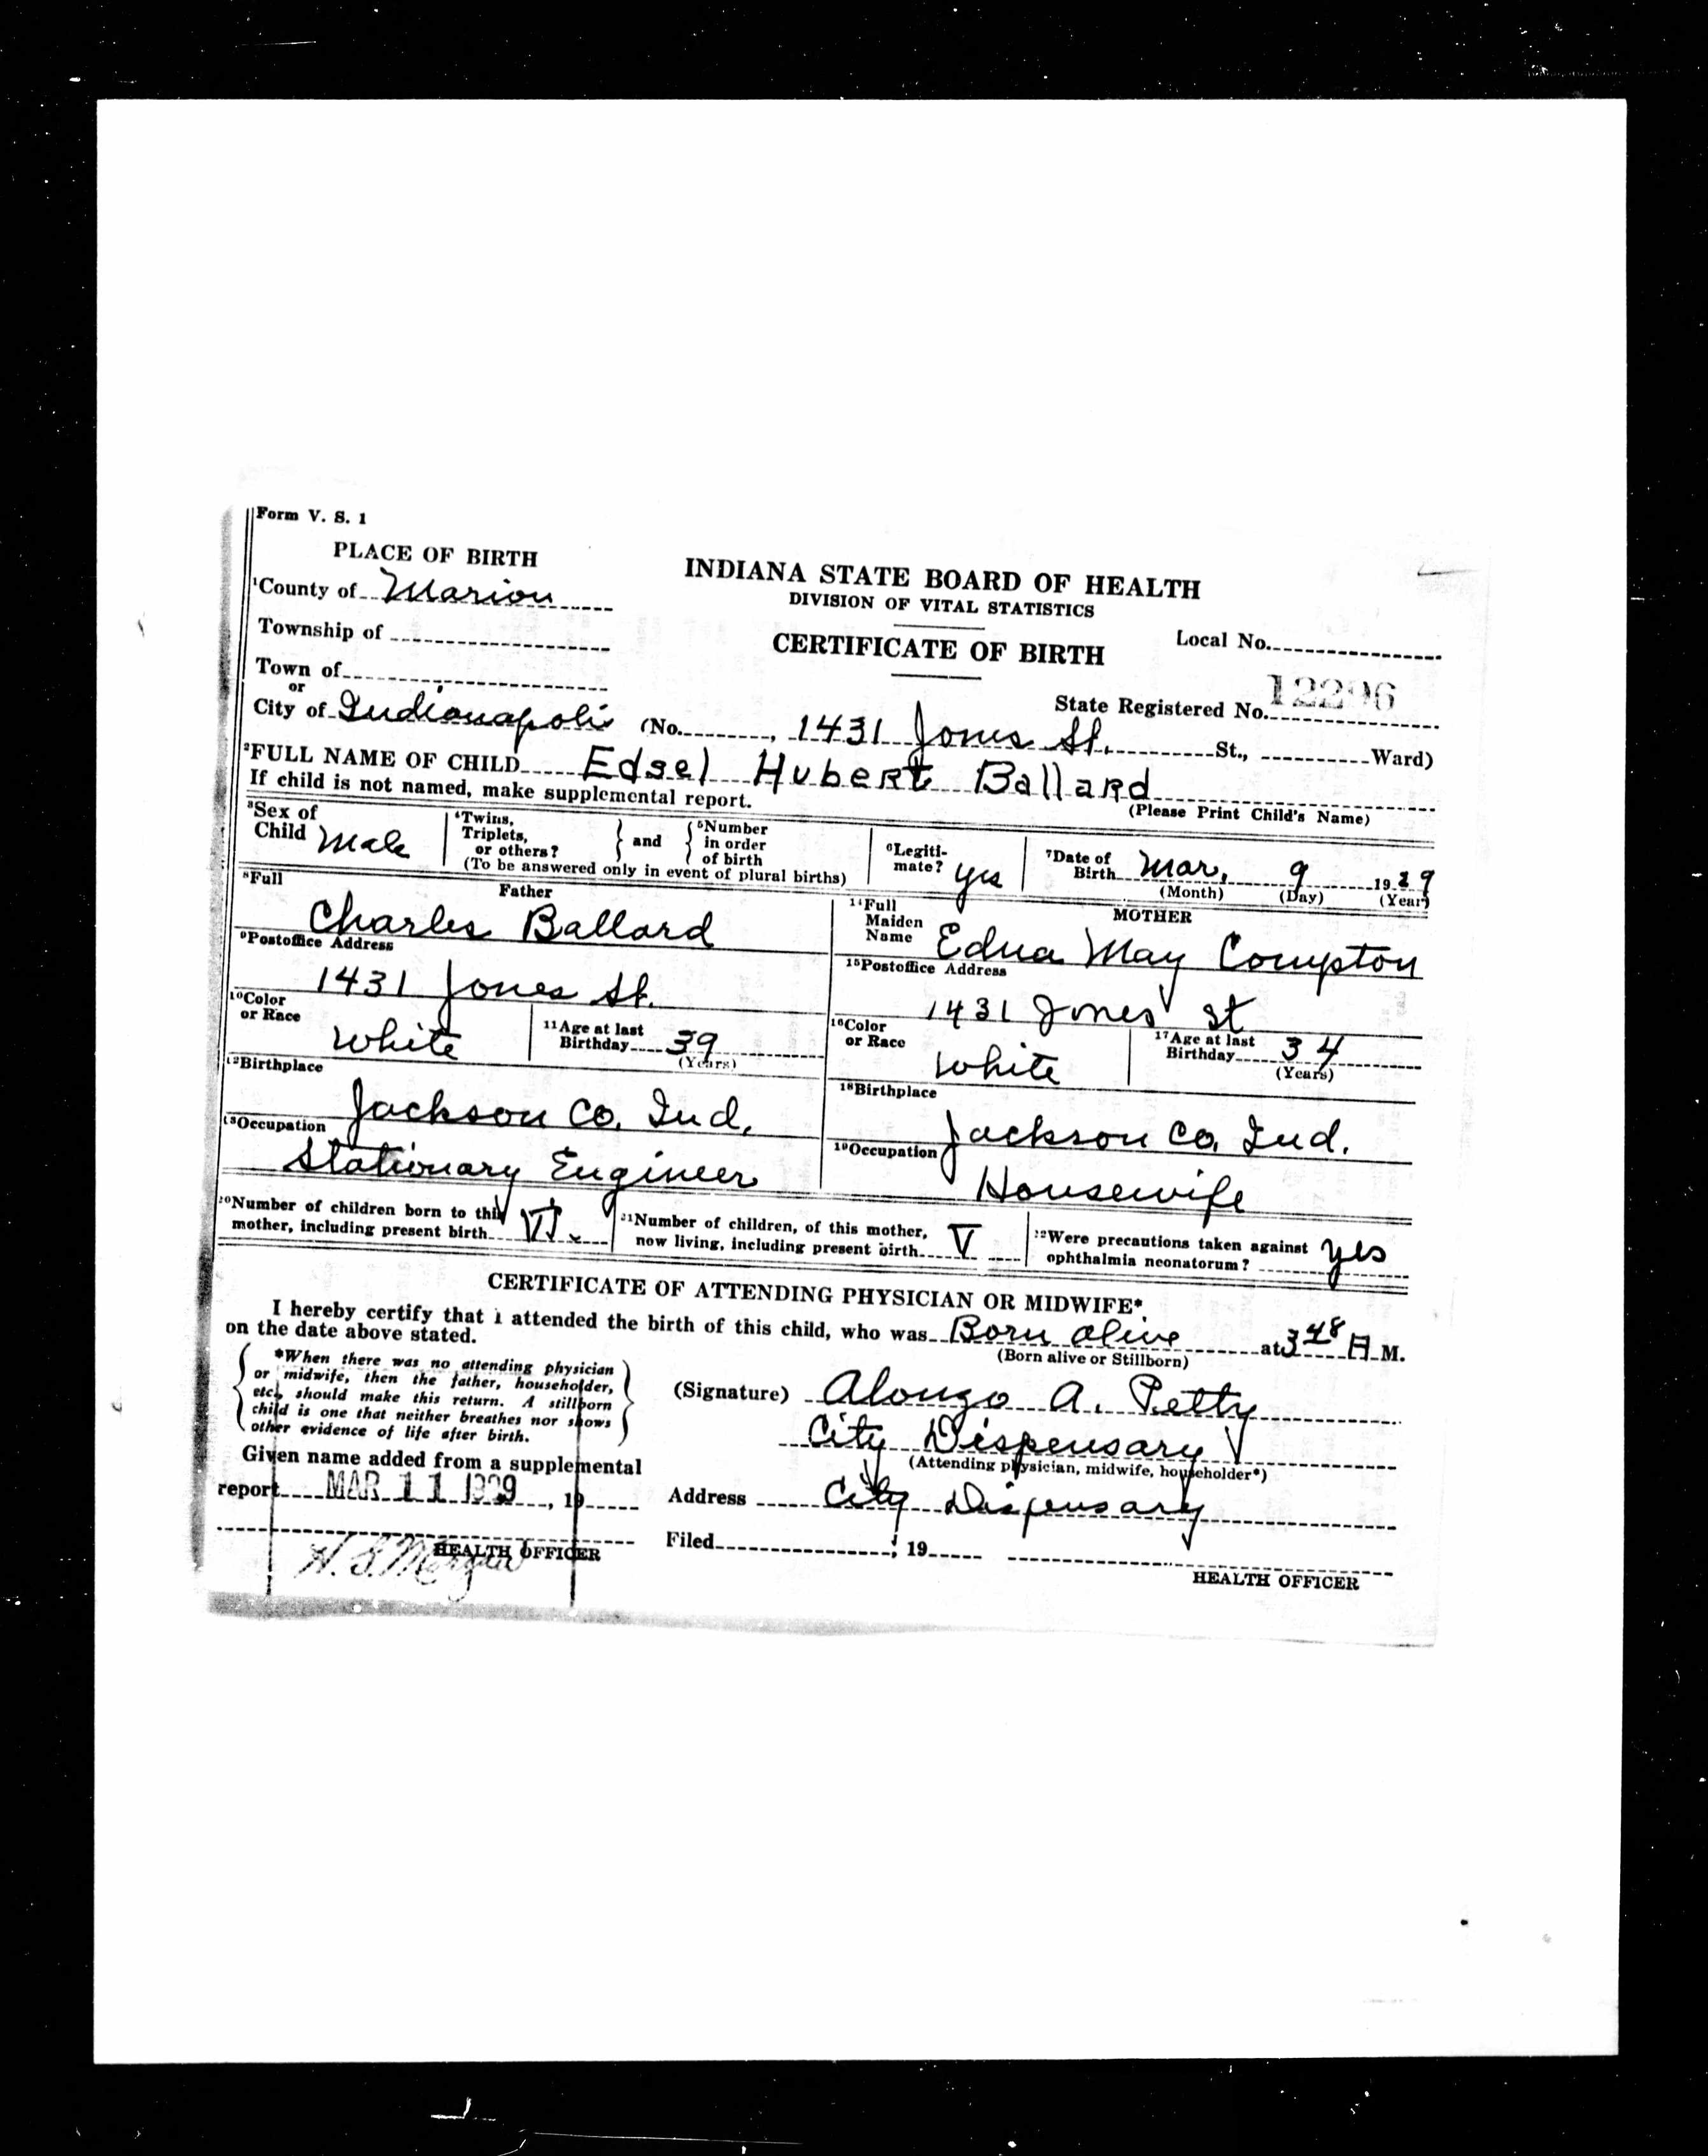 Form V. S. 1
PLACE OF BIRTH
INDIANA STATE BOARD OF HEALTH
DIVISION OF VITAL STATISTICS
1County of Marion
Township of
CERTIFICATE OF BIRTH
Local No.
Town of
or
State Registered No. 12296
City of Indianapolis (No. , 1431 Jones St. St., Ward)
2FULL NAME OF CHILD Edsel Hubert Ballard
If child is not named, make supplemental report.
(Please Print Child's Name)
3Sex of Child Male
4Twins, Triplets, or others? } and { 5Number in order of birth
(To be answered only in event of plural births)
6Legiti-mate? yes
7Date of Birth Mar, 9 1929
(Month) (Day) (Year)
8Full Father
Charles Ballard
14Full Maiden Name MOTHER
Edna May Compton
9Postoffice Address
1431 Jones St.
15Postoffice Address
1431 Jones St
10Color or Race White
11Age at last Birthday 39
(Years)
16Color or Race White
17Age at last Birthday 34
(Years)
12Birthplace
Jackson Co. Ind.
18Birthplace
Jackson Co. Ind.
13Occupation
Stationary Engineer
19Occupation
Housewife
20Number of children born to this mother, including present birth VI
21Number of children, of this mother, now living, including present birth V
22Were precautions taken against ophthalmia neonatorum? yes
CERTIFICATE OF ATTENDING PHYSICIAN OR MIDWIFE*
I hereby certify that i attended the birth of this child, who was Born alive at 3 48 A M.
on the date above stated.
(Born alive or Stillborn)
*When there was no attending physician
or midwife, then the father, householder,
etc., should make this return. A stillborn
child is one that neither breathes nor shows
other evidence of life after birth.
(Signature) Alonzo A. Petty
City Dispensary
(Attending physician, midwife, householder*)
Given name added from a supplemental
report MAR 11 1929, 19
Address City Dispensary
HEALTH OFFICER
Filed , 19
HEALTH OFFICER